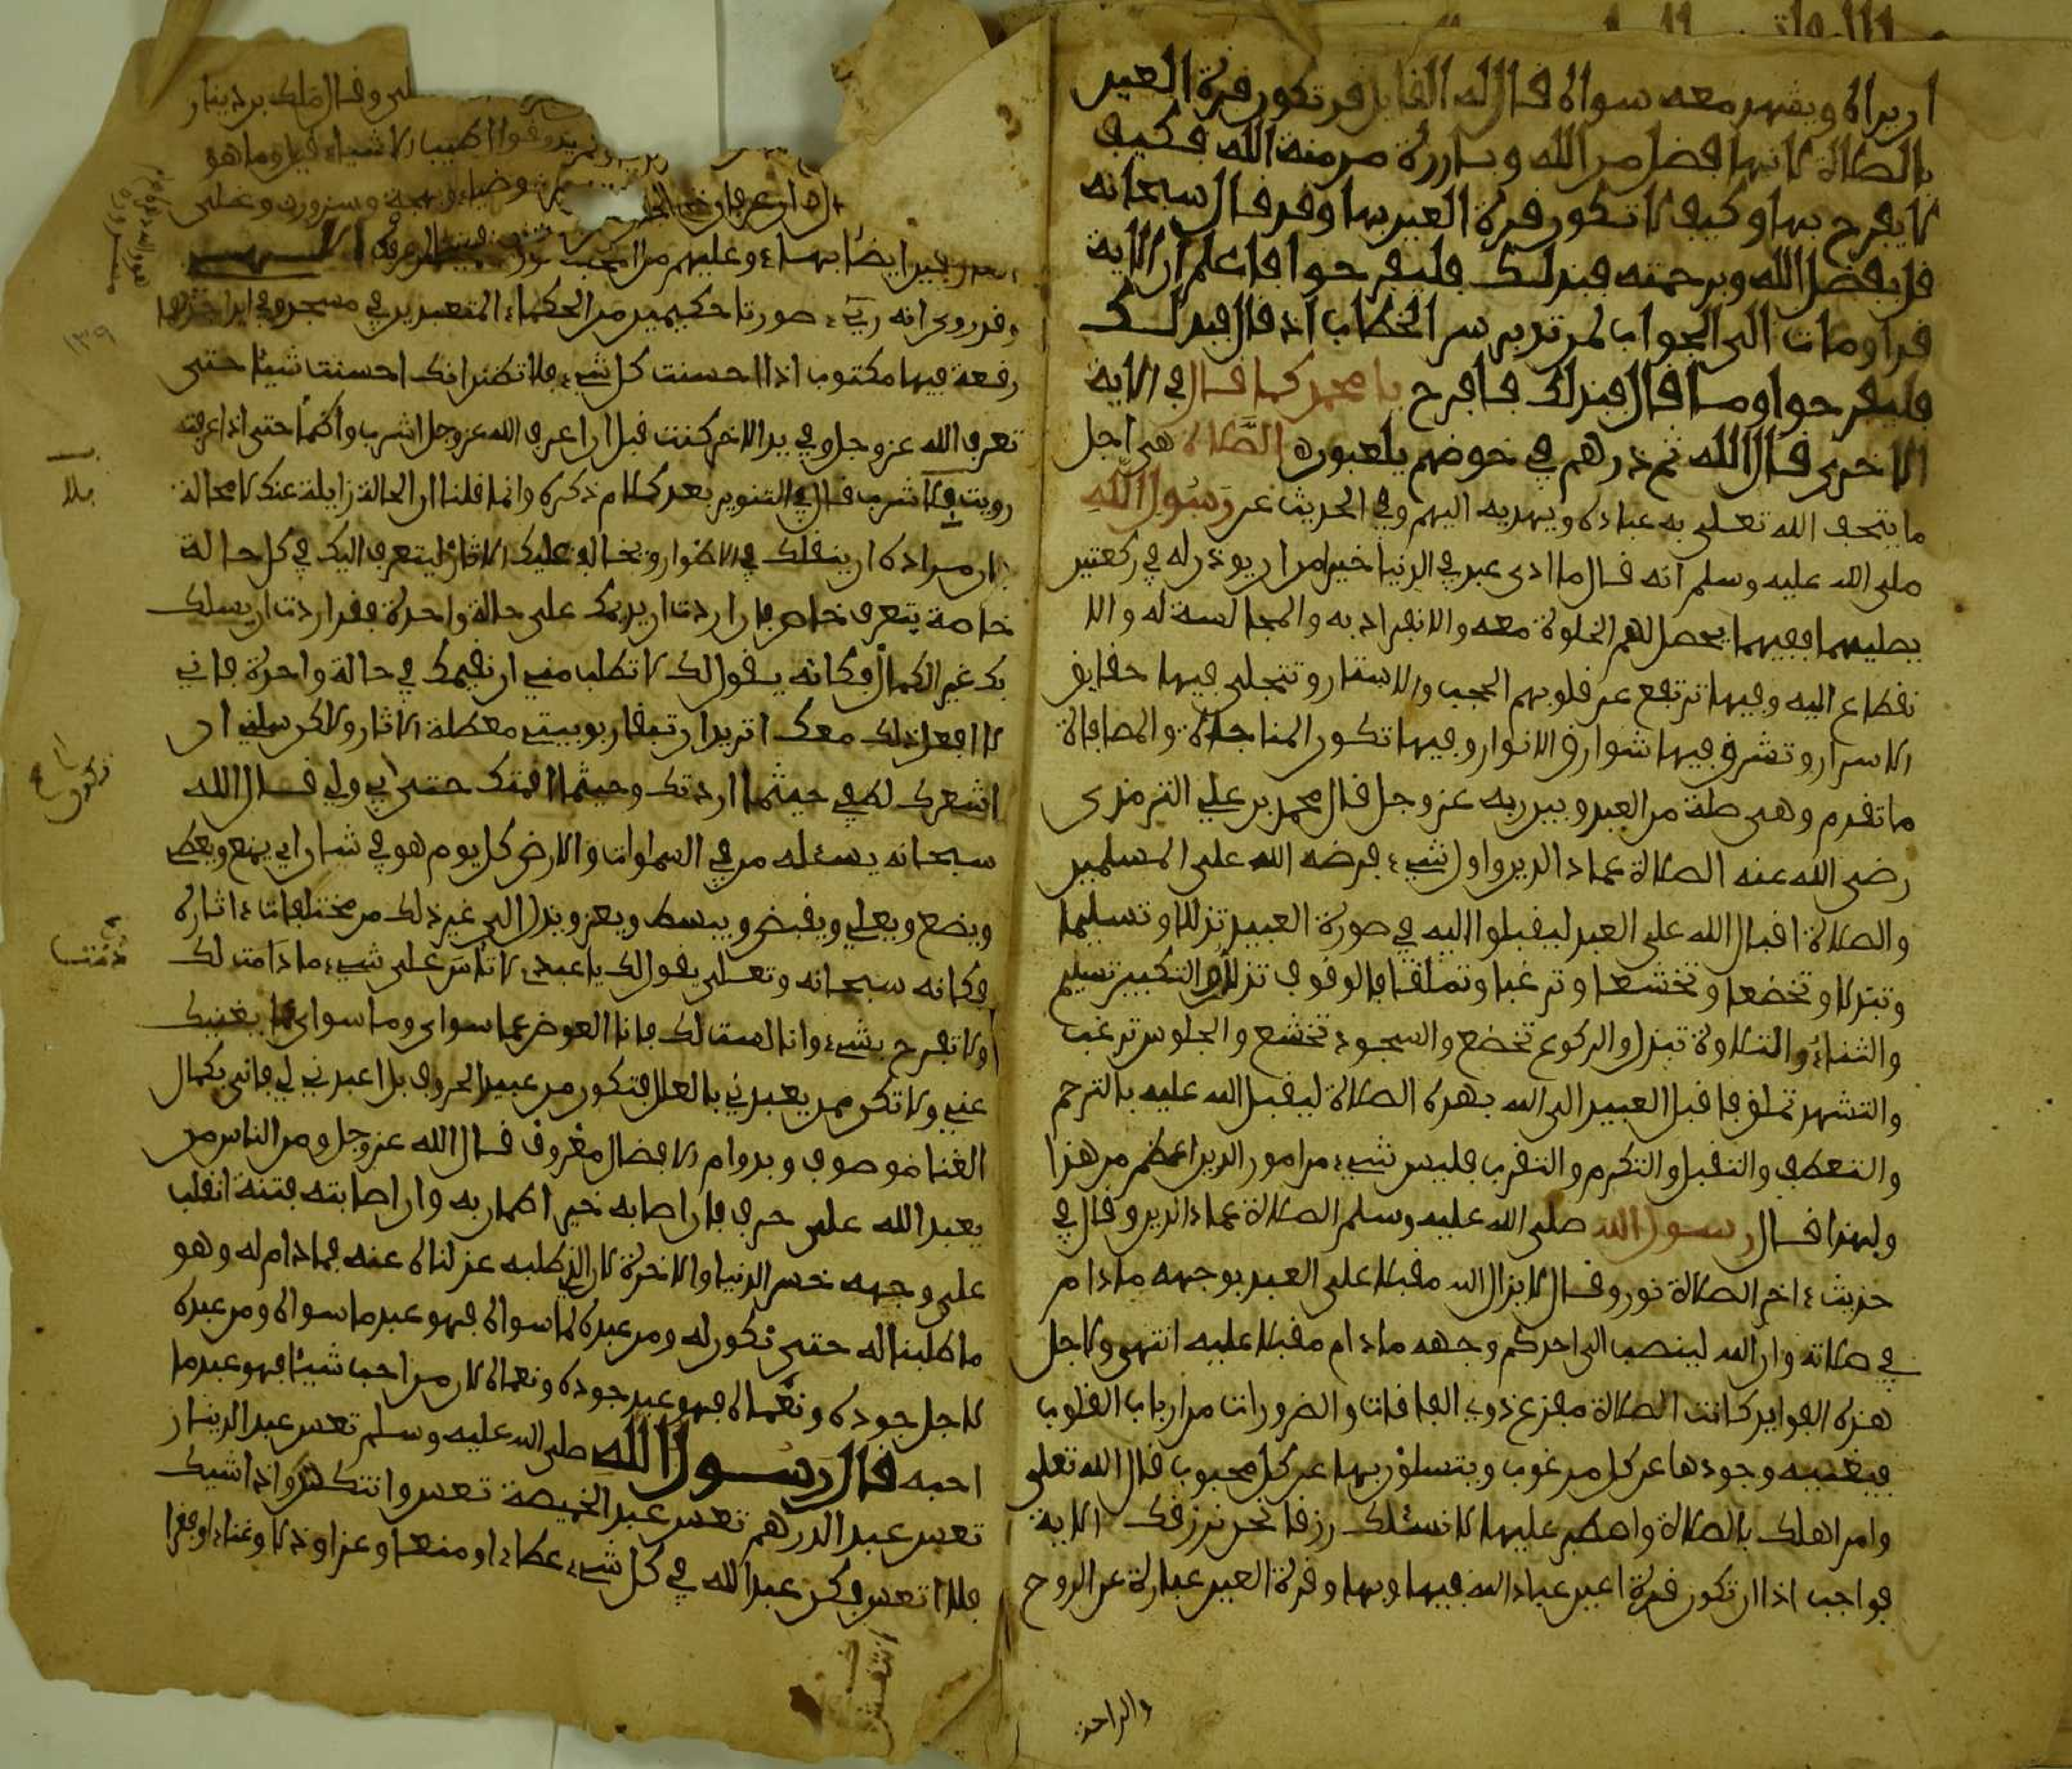 ان يراه ويشهد معه سواه قال له القايل قد تكون قرة العين
بالصلاة لانها فضل من الله وبارزة من منة الله فكيف
لا يفرح بها وكيف لا تكون قرة العين بها وقد قال سبحانه
قل بفضل الله وبرحمته فبذلك فليفرحوا فاعلم ان الاية
قد اومات الى الجواب لمن تدبر سر الخطاب اذ قال فبذلك
فليفرحوا وما قال فبذلك فافرح يا محمد كما قال في الاية
الاخرى قال الله ثم ذرهم في خوضهم يلعبون الصلاة هي اجل
ما يتحف الله تعلى به عباده ويهديه اليهم وفي الحديث عن رسول الله
صلى الله عليه وسلم انه قال ما اوتي عبد في الدنيا خيرا من ان يوذن له في ركعتين
يصليهما ففيهما يحصل لهم الخلوة معه والانفراد به والمجالسة له والا
نقطاع اليه وفيها ترتفع عن قلوبهم الحجب والاستار وتتجلى فيها حقايق
الاسرار وتشرق فيها شوارق الانوار وفيها تكون المناجاة والمصافاة
ما تقدم وهي صلة من العبد وبين ربه عز وجل قال محمد بن علي الترمذي
رضي الله عنه الصلاة عماد الدين واول شيء فرضه الله على المسلمين
والصلاة اقبال الله على العبد ليقبلوا اليه في صورة العبيد تذللا وتسليما
وتبذلا وتخضعا وتخشعا وترغبا وتملقا فالوقوف تذلل والتكبير تسليم
والثناء والتلاوة تبذل والركوع تخضع والسجود تخشع والجلوس ترغب
والتشهد تملق فاقبل العبيد الى الله بهذه الصلاة ليقبل الله عليه بالترحم
والتعطف والتقبل والتكرم والتقرب فليس شيء من امور الدين اعظم من هذا
ولهذا قال رسول الله صلى الله عليه وسلم الصلاة عماد الدين وقال في
حديث ءاخر الصلاة نور وقال لا يزال الله مقبلا على العبد بوجهه ما دام
في صلاته وان الله لينصب الى احدكم وجهه ما دام مقبلا عليه انتهى ولاجل
هذه الفوايد كانت الصلاة مفزع ذوي الفاقات والضرورات من ارباب القلوب
فيغنيه وجودها عن كل مرغوب ويتسلون بها عن كل محبوب قال الله تعلى
وامر اهلك بالصلاة واصطبر عليها لا نسئلك رزقا نحن نرزقك الاية
فواجب اذا ان تكون قرة اعين عباد الله فيها وبها وقرة العين عبارة عن الروح
والراحة
وقال ملك بن دينار
اطيب الاشياء قيل وما هو
وضياء وبهجة وسرور وعلى
ايضا بهاء وعليهم من المحبة نور
وقد روي انه ريء صورتا حكيمين من الحكماء المتعبدين في مسجد وفي يد احدهما
رقعة فيها مكتوب اذا احسنت كل شيء فلا تظنن انك احسنت شيئا حتى
تعرف الله عز وجل وفي يد الاخر كنت قبل ان اعرف الله عز وجل اشرب واظما حتى اذا عرفته
رويت بلا شرب قال في التنوير بعد كلام ذكره وانما قلنا ان الحالة زايلة عنك لا محالة
ان مراده ان ينقلك في الاطوار ويخالف عليك الاثار ليتعرف اليك في كل حالة
خاصة بتعرف خاص فان اردت ان يديمك على حالة واحدة فقد اردت ان يسلك
بك غير الكمال فكانه يقول لك لا تطلب مني ان نقيمك في حالة واحدة فاني
لا افعل ذلك معك اتريد ان تبقى ربوبيتي معطلة الاثار ولاكن سلني ان
اشعرك لطفي حيثما اردتك وحيثما اقمتك حتى ابي ولي قال الله
سبحانه يسئله من في السموات والارض كل يوم هو في شان اي يمنع ويعطي
ويضع ويعلي ويقبض ويبسط ويعز ويذل الى غير ذلك من مختلفات ءاثاره
فكانه سبحانه وتعلى يقول لك يا عبدي لا تاس على شيء ما دامت لك
ولا تفرح بشيء وانا لست لك فانا العوض عما سواي وما سواي لا يغنيك
عني ولا تكن ممن يعبدني بالعلل فتكون من عبيد الحروف بل اعبدني لي فاني بكمال
الغنا موصوف وبدوام الافضال معروف قال الله عز وجل ومن الناس من
يعبد الله على حرف فان اصابه خير اطمان به وان اصابته فتنة انقلب
على وجهه خسر الدنيا والاخرة لان الذي طلبه عزلناه عنه فما دام له وهو
ما طلبنا له حتى نكون له ومن عبده لما سواه فهو عبد ما سواه ومن عبده
لاجل جوده ونعماه فهو عبد جوده ونعماه لان من احب شيئا فهو عبد ما
احبه قال رسول الله صلى الله عليه وسلم تعس عبد الدينار
تعس عبد الدرهم تعس عبد الخميصة تعس وانتكس واذا شيك
فلا انتعش فكن عبد الله في كل شيء عطاء او منعا وعزا وذلا وغناء او فقرا
١٣٩
بلا
تكون
دمت
انتعش